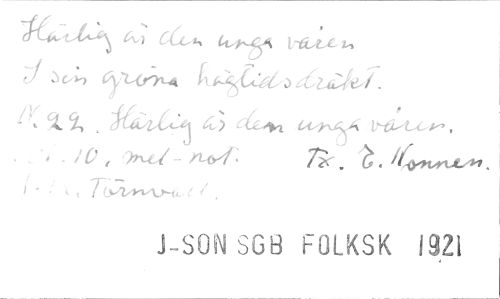 Härlig är den unga våren
I sin gröna högtidsdräkt.
N. 22. Härlig är den unga våren.
N. 10. mel-not. Tx. E. Nonnen.
Törnvall.
J-SON SGB FOLKSK 1921